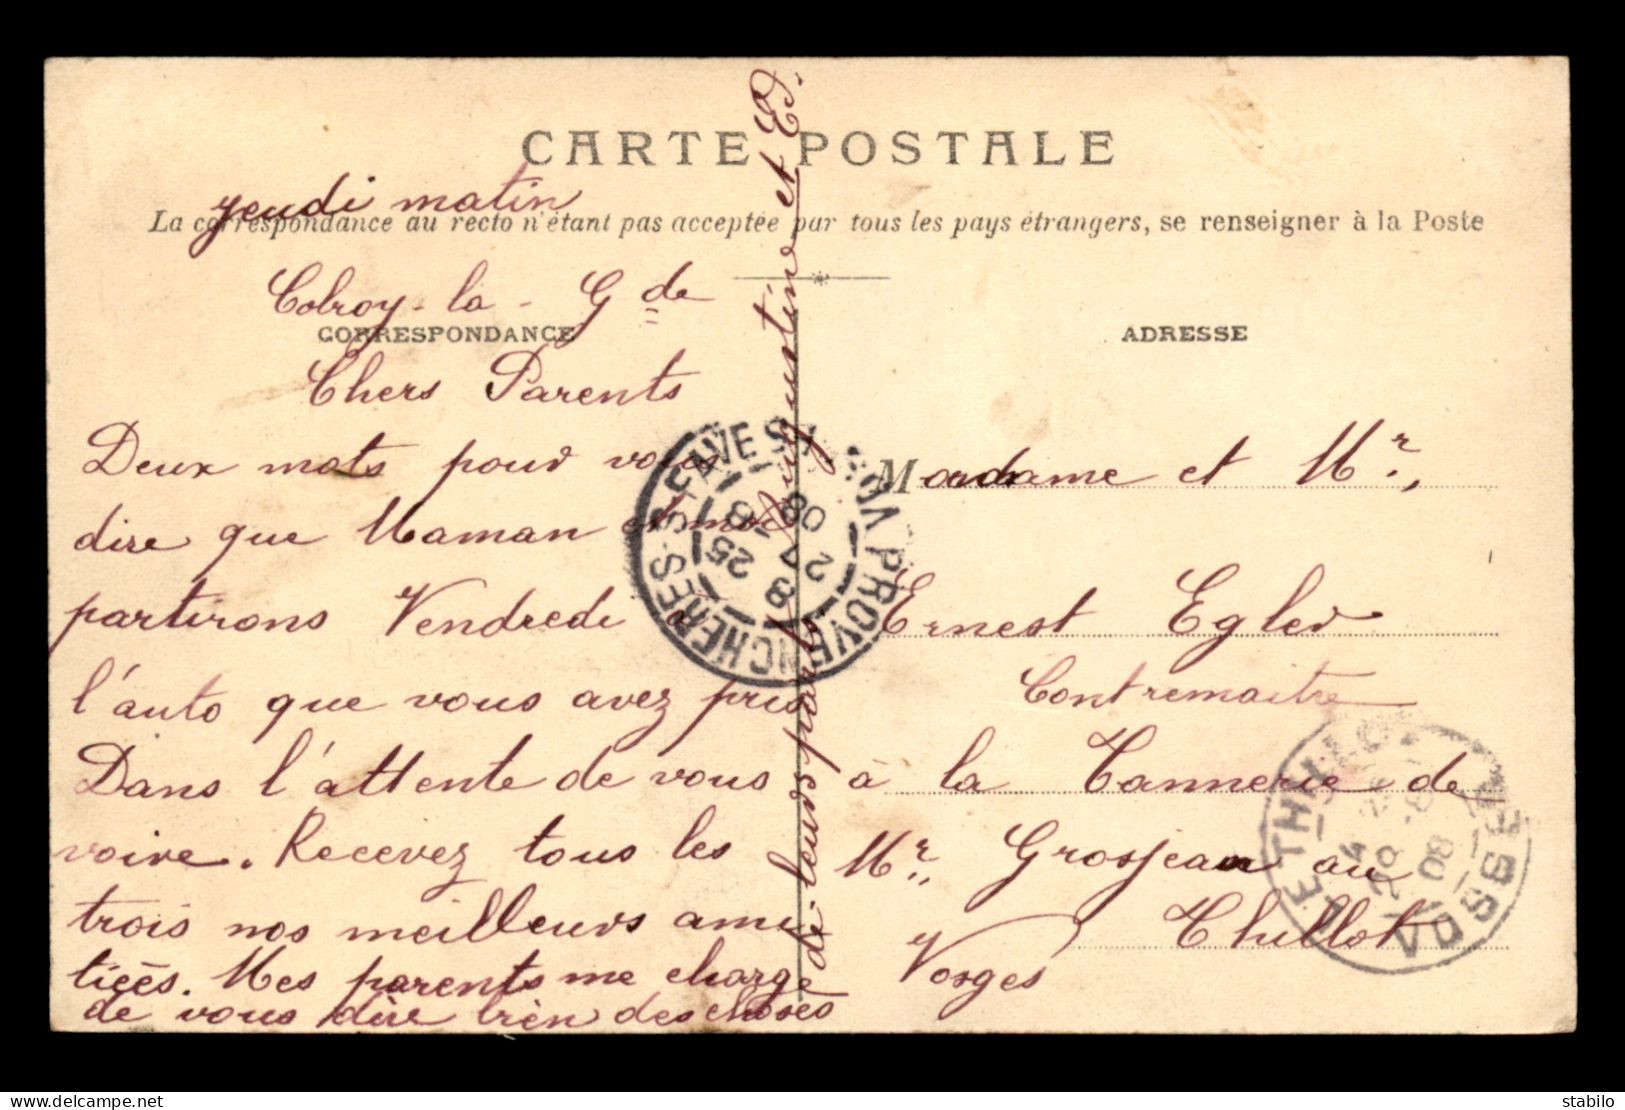 CARTE POSTALE
La correspondance au recto n'étant pas acceptée par tous les pays étrangers, se renseigner à la Poste
jeudi matin
Colroy-la-Gde
CORRESPONDANCE
Chers Parents
Deux mots pour vous
dire que Maman et moi
partirons Vendredi à
l'auto que vous avez pris
Dans l'attente de vous
voire. Recevez tous les
trois nos meilleurs ami
tiées. Mes parents me charge
de vous dire bien des choses
de leurs part Augustine et Ed.
ADRESSE
Madame et Mr.,
Ernest Egler
Contremaitre
à la Tannerie de
Mr. Grosjean au
Thillot
Vosges
PROVENCHERES-S-FAVE
25
27 8
08
LE THILLOT
VOSGES
08
delcampe.net
stabilo